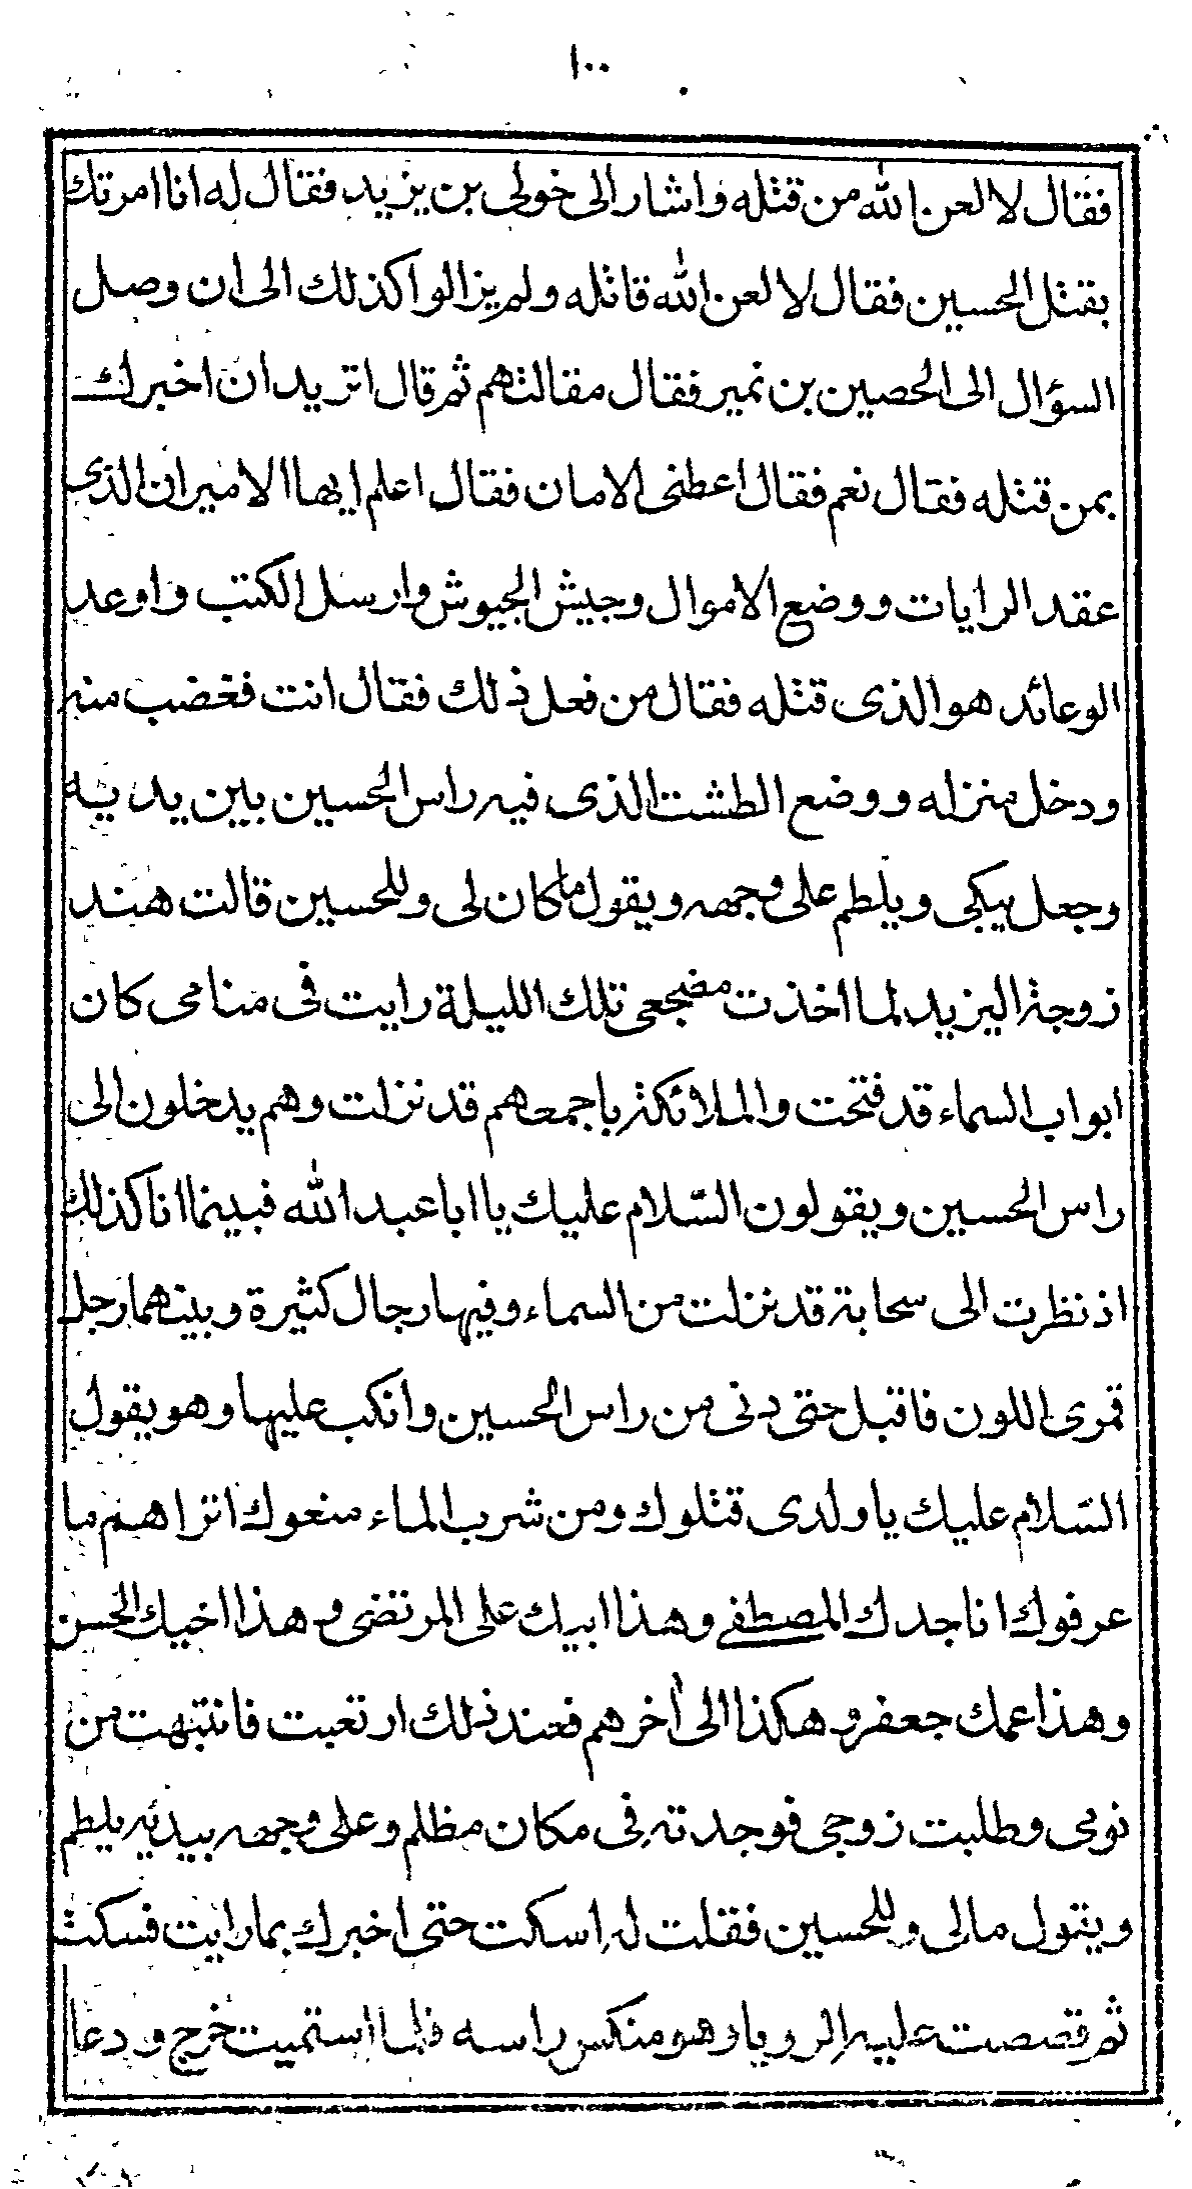 ١٠٠
فقال لا لعن الله من قتله واشار الى خولى بن يزيد فقال له انا امرتك
بقتل الحسين فقال لا لعن الله قاتله ولم يزالوا كذلك الى ان وصل
السؤال الى الحصين بن نمير فقال مقالتهم ثم قال اتريد ان اخبرك
بمن قتله فقال نعم فقال اعطنى الامان فقال اعلم ايها الامير ان الذى
عقد الرايات ووضع الاموال وجيش الجيوش وارسل الكتب واوعد
الوعائد هو الذى قتله فقال من فعل ذلك فقال انت فغضب منه
ودخل منزله ووضع الطشت الذى فيه راس الحسين بين يديه
وجعل يبكى ويلطم على وجهه ويقول ما كان لى وللحسين قالت هند
زوجة اليزيد لما اخذت مضجعى تلك الليلة رايت فى منامى كان
ابواب السماء قد فتحت والملائكة باجمعهم قد نزلت وهم يدخلون الى
راس الحسين ويقولون السّلام عليك يا ابا عبد الله فبينما انا كذلك
اذ نظرت الى سحابة قد نزلت من السماء وفيها رجال كثيرة وبينهما رجل
قمرى اللون فاقبل حتى دنى من راس الحسين وانكب عليها وهو يقول
السّلام عليك يا ولدى قتلوك ومن شرب الماء منعوك اتراهم ما
عرفوك انا جدك المصطفى وهذا ابيك على المرتضى وهذا اخيك الحسن
وهذا عمك جعفر وهكذا الى آخرهم فعند ذلك ارتعبت فانتبهت من
نومى وطلبت زوجى فوجدته فى مكان مظلم وعلى وجهه بيديه يلطم
ويقول مالى وللحسين فقلت له اسكت حتى اخبرك بما رايت فسكت
ثم قصصت عليه الرويا وهو منكس راسه فلما استميت خرج ودعا